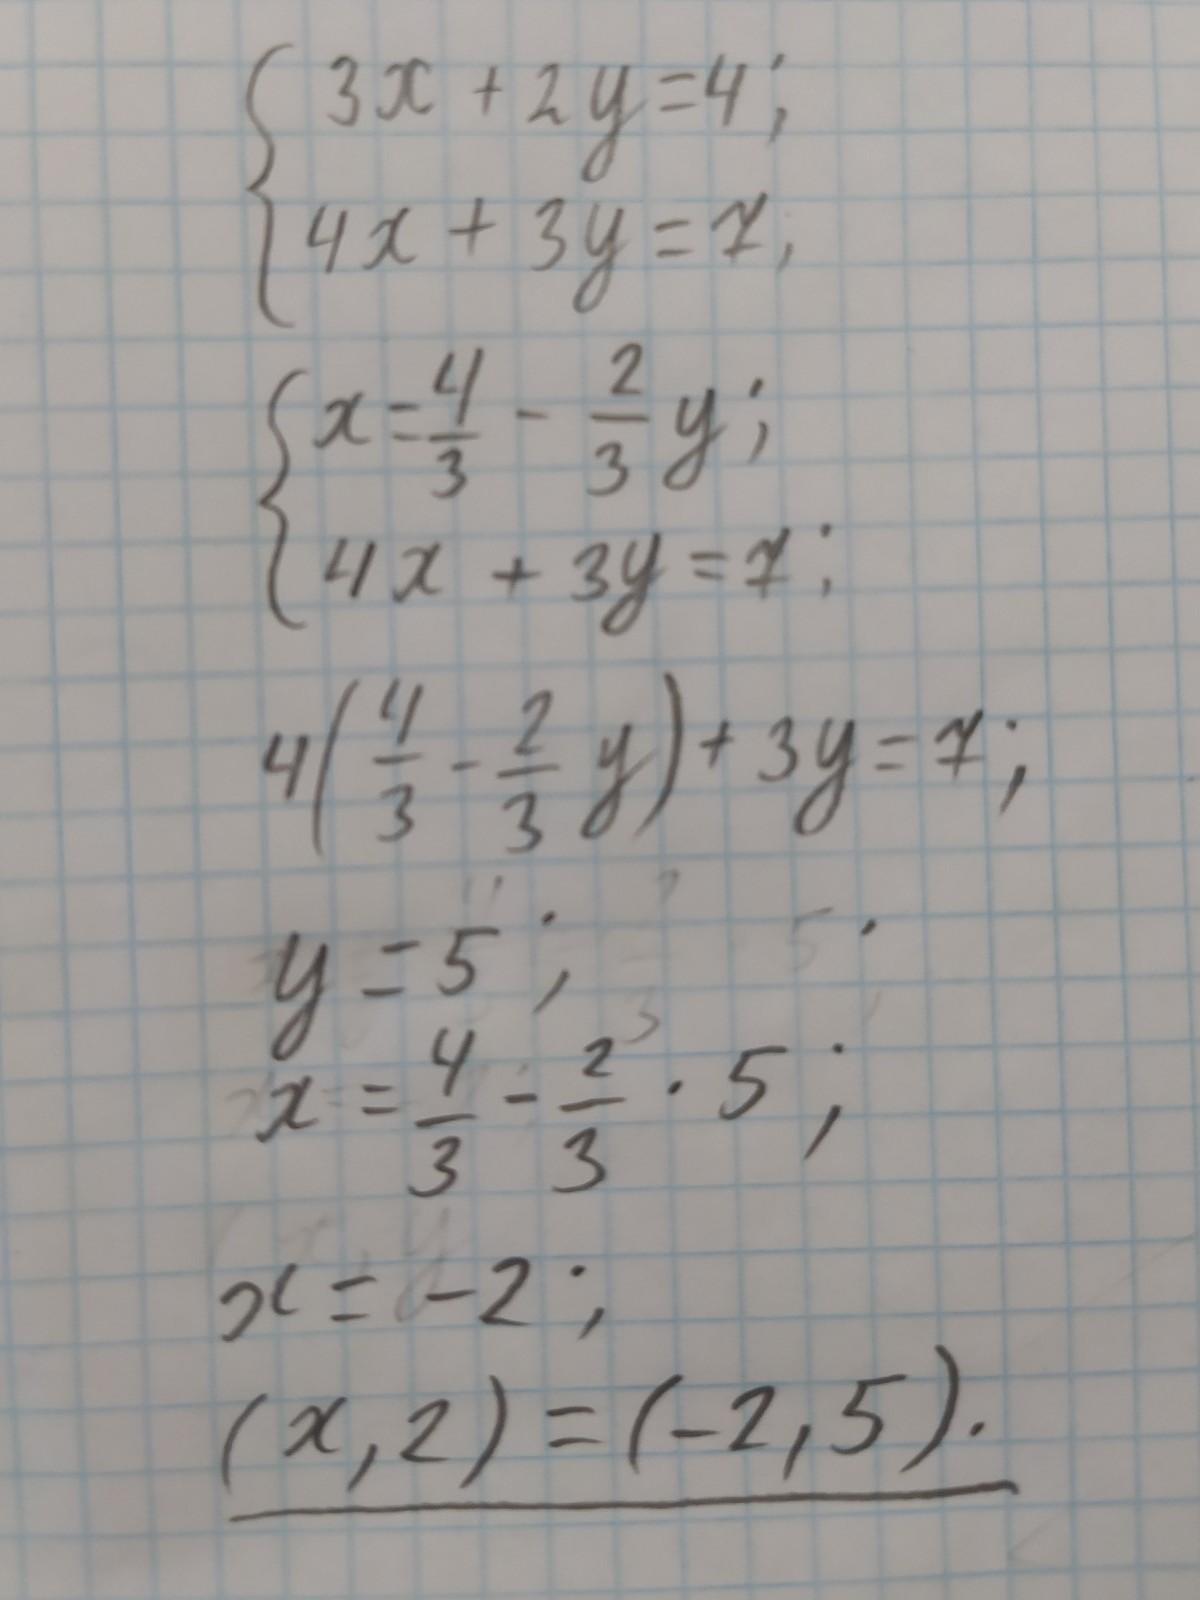 3x + 2y = 4;
4x + 3y = 7,
x = 4/3 - 2/3 y;
4x + 3y = 7;
4(4/3 - 2/3 y) + 3y = 7;
y = 5;
x = 4/3 - 2/3 · 5;
x = -2;
(x, 2) = (-2, 5).